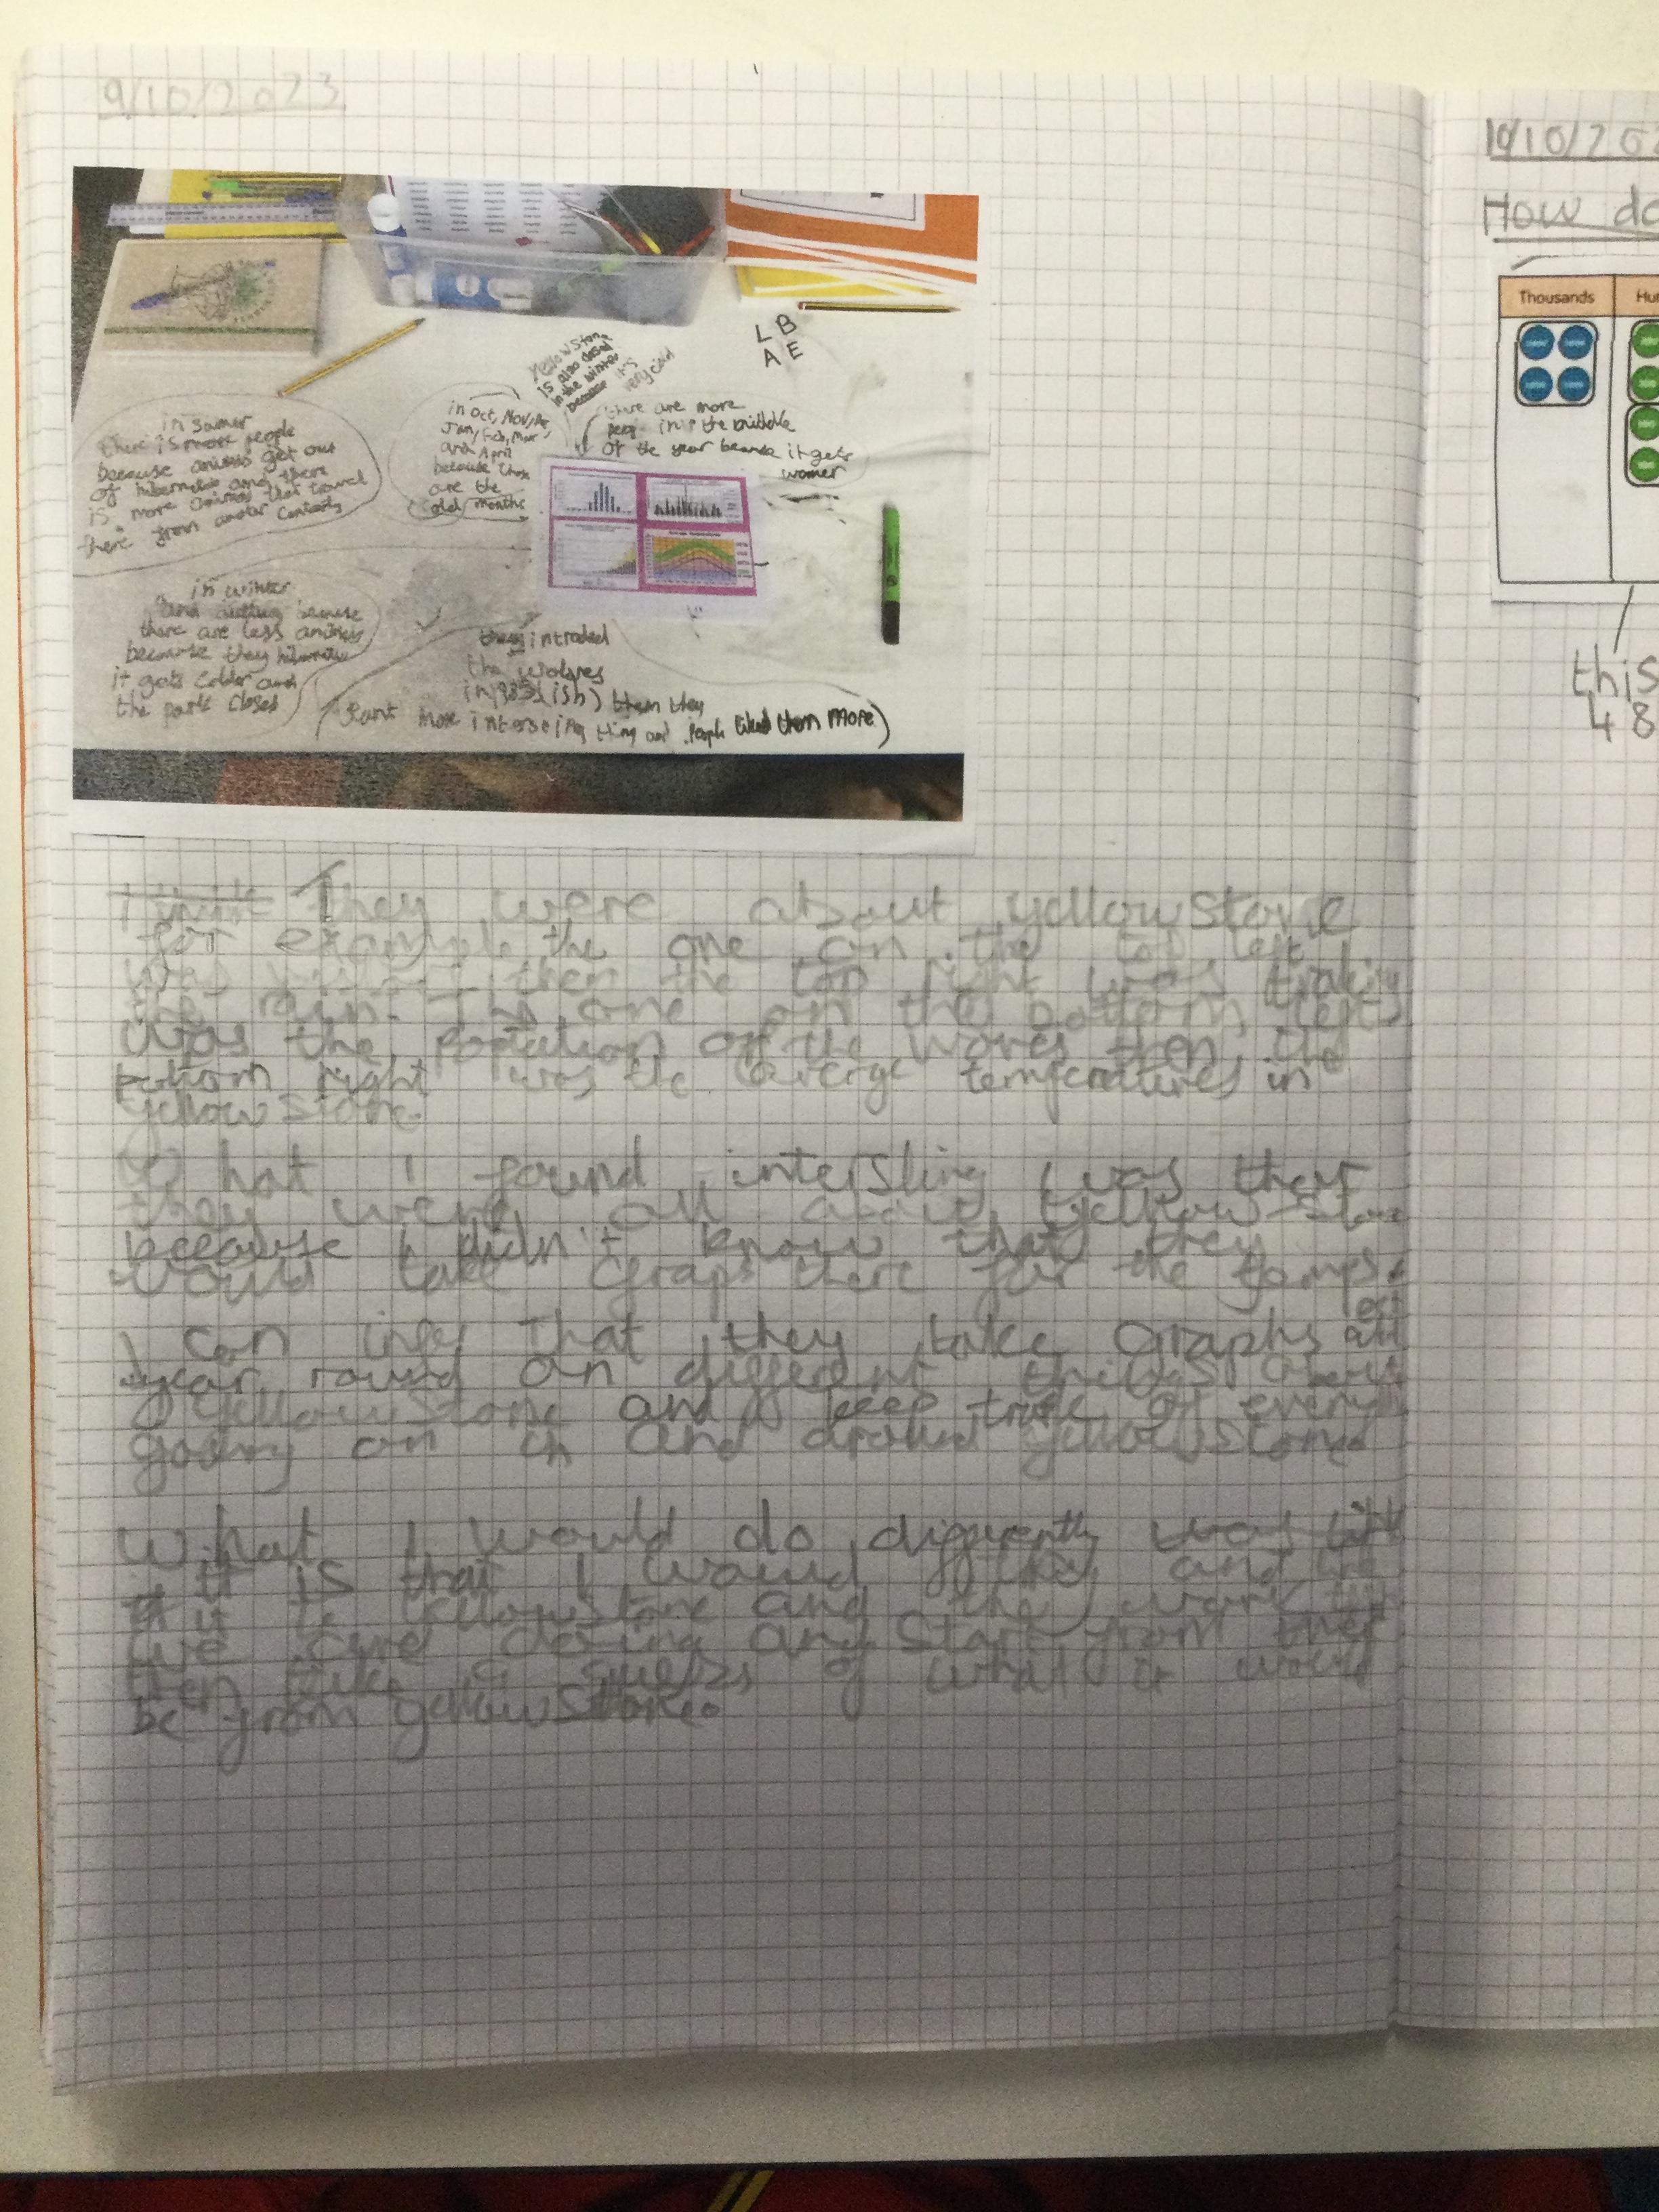 9/10/2023
L B
A E
yellowston
is also closed
in the winter
because it's
very cold
in sumer
there is more people
because animals get out
of hibernation and there
is more animals that travel
there from
in oct, Nov,
Jan, Feb, Mar,
and April
because thos
are the
months
there are more
in the middle
of the year because it gets
warmer
in winter
and because
there are less animals
because they
it gets colder and
the park closes
they introded
the wolves
in (ish) then they
more thing and people liked them more)
They were about yellowstone
for example the one on the top left
was then the top right was traking
the rain. The one on the bottom left
was the of the wolves then the
bottom right was the averge temperatures in
yellowstone.
What I found intersting was that
they were all about yellowstone
because I didn't know that they
would take Graps there for the temps.
I can infer That they take Graphs all
year round on different things about
yellowstone and keep track of every
going on in and around yellowstone
What I would do differently was
it is that I would and
it to yellowstone and the work
we are doing and start from ther
then take a of what it would
be from yellowstone.
10/10/202
How do
Thousands Hu
this
48